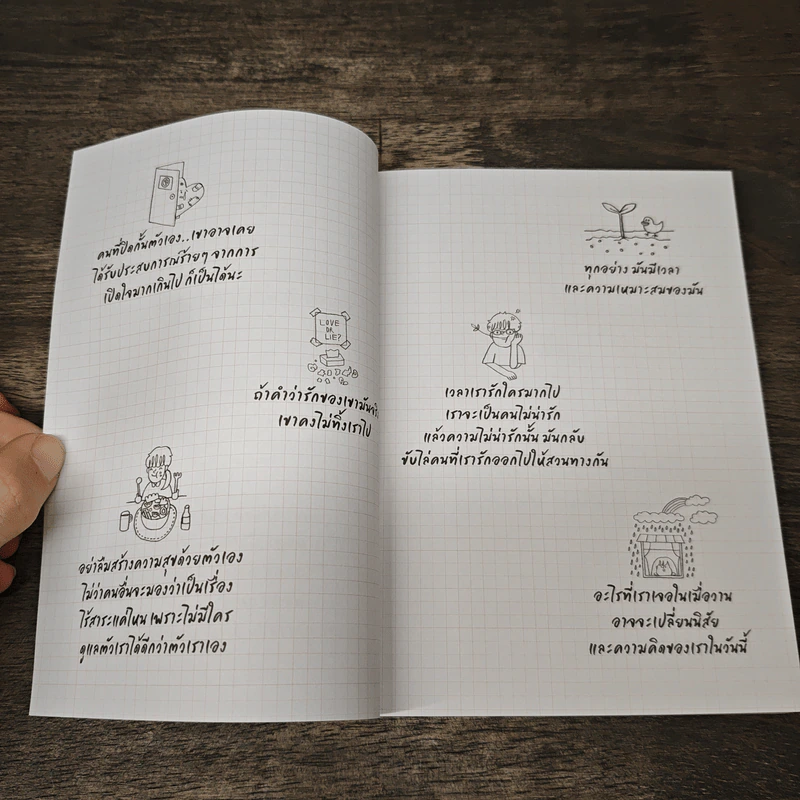 คนที่ปิดกั้นตัวเอง..เขาอาจเคย
ได้รับประสบการณ์ร้ายๆ จากการ
เปิดใจมากเกินไป ก็เป็นได้นะ
LOVE
OR
LIE?
ถ้าคำว่ารักของเขามันจริง
เขาคงไม่ทิ้งเราไป
อย่าลืมสร้างความสุขด้วยตัวเอง
ไม่ว่าคนอื่นจะมองว่าเป็นเรื่อง
ไร้สาระแค่ไหน เพราะไม่มีใคร
ดูแลตัวเราได้ดีกว่าตัวเราเอง
ทุกอย่าง มันมีเวลา
และความเหมาะสมของมัน
เวลาเรารักใครมากไป
เราจะเป็นคนไม่น่ารัก
แล้วความไม่น่ารักนั้น มันกลับ
ขับไล่คนที่เรารักออกไปให้สวนทางกัน
อะไรที่เราเจอในเมื่อวาน
อาจจะเปลี่ยนนิสัย
และความคิดของเราในวันนี้